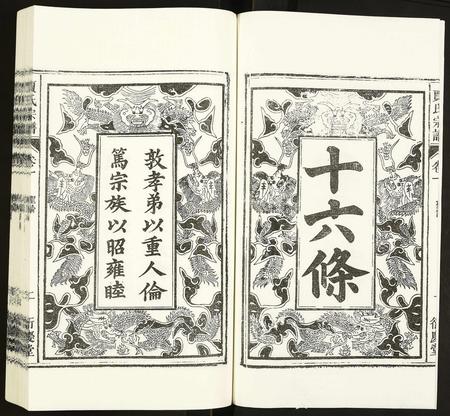 十六條
敦孝弟以重人倫
篤宗族以昭雍睦
氏宗譜
卷一
衍慶堂